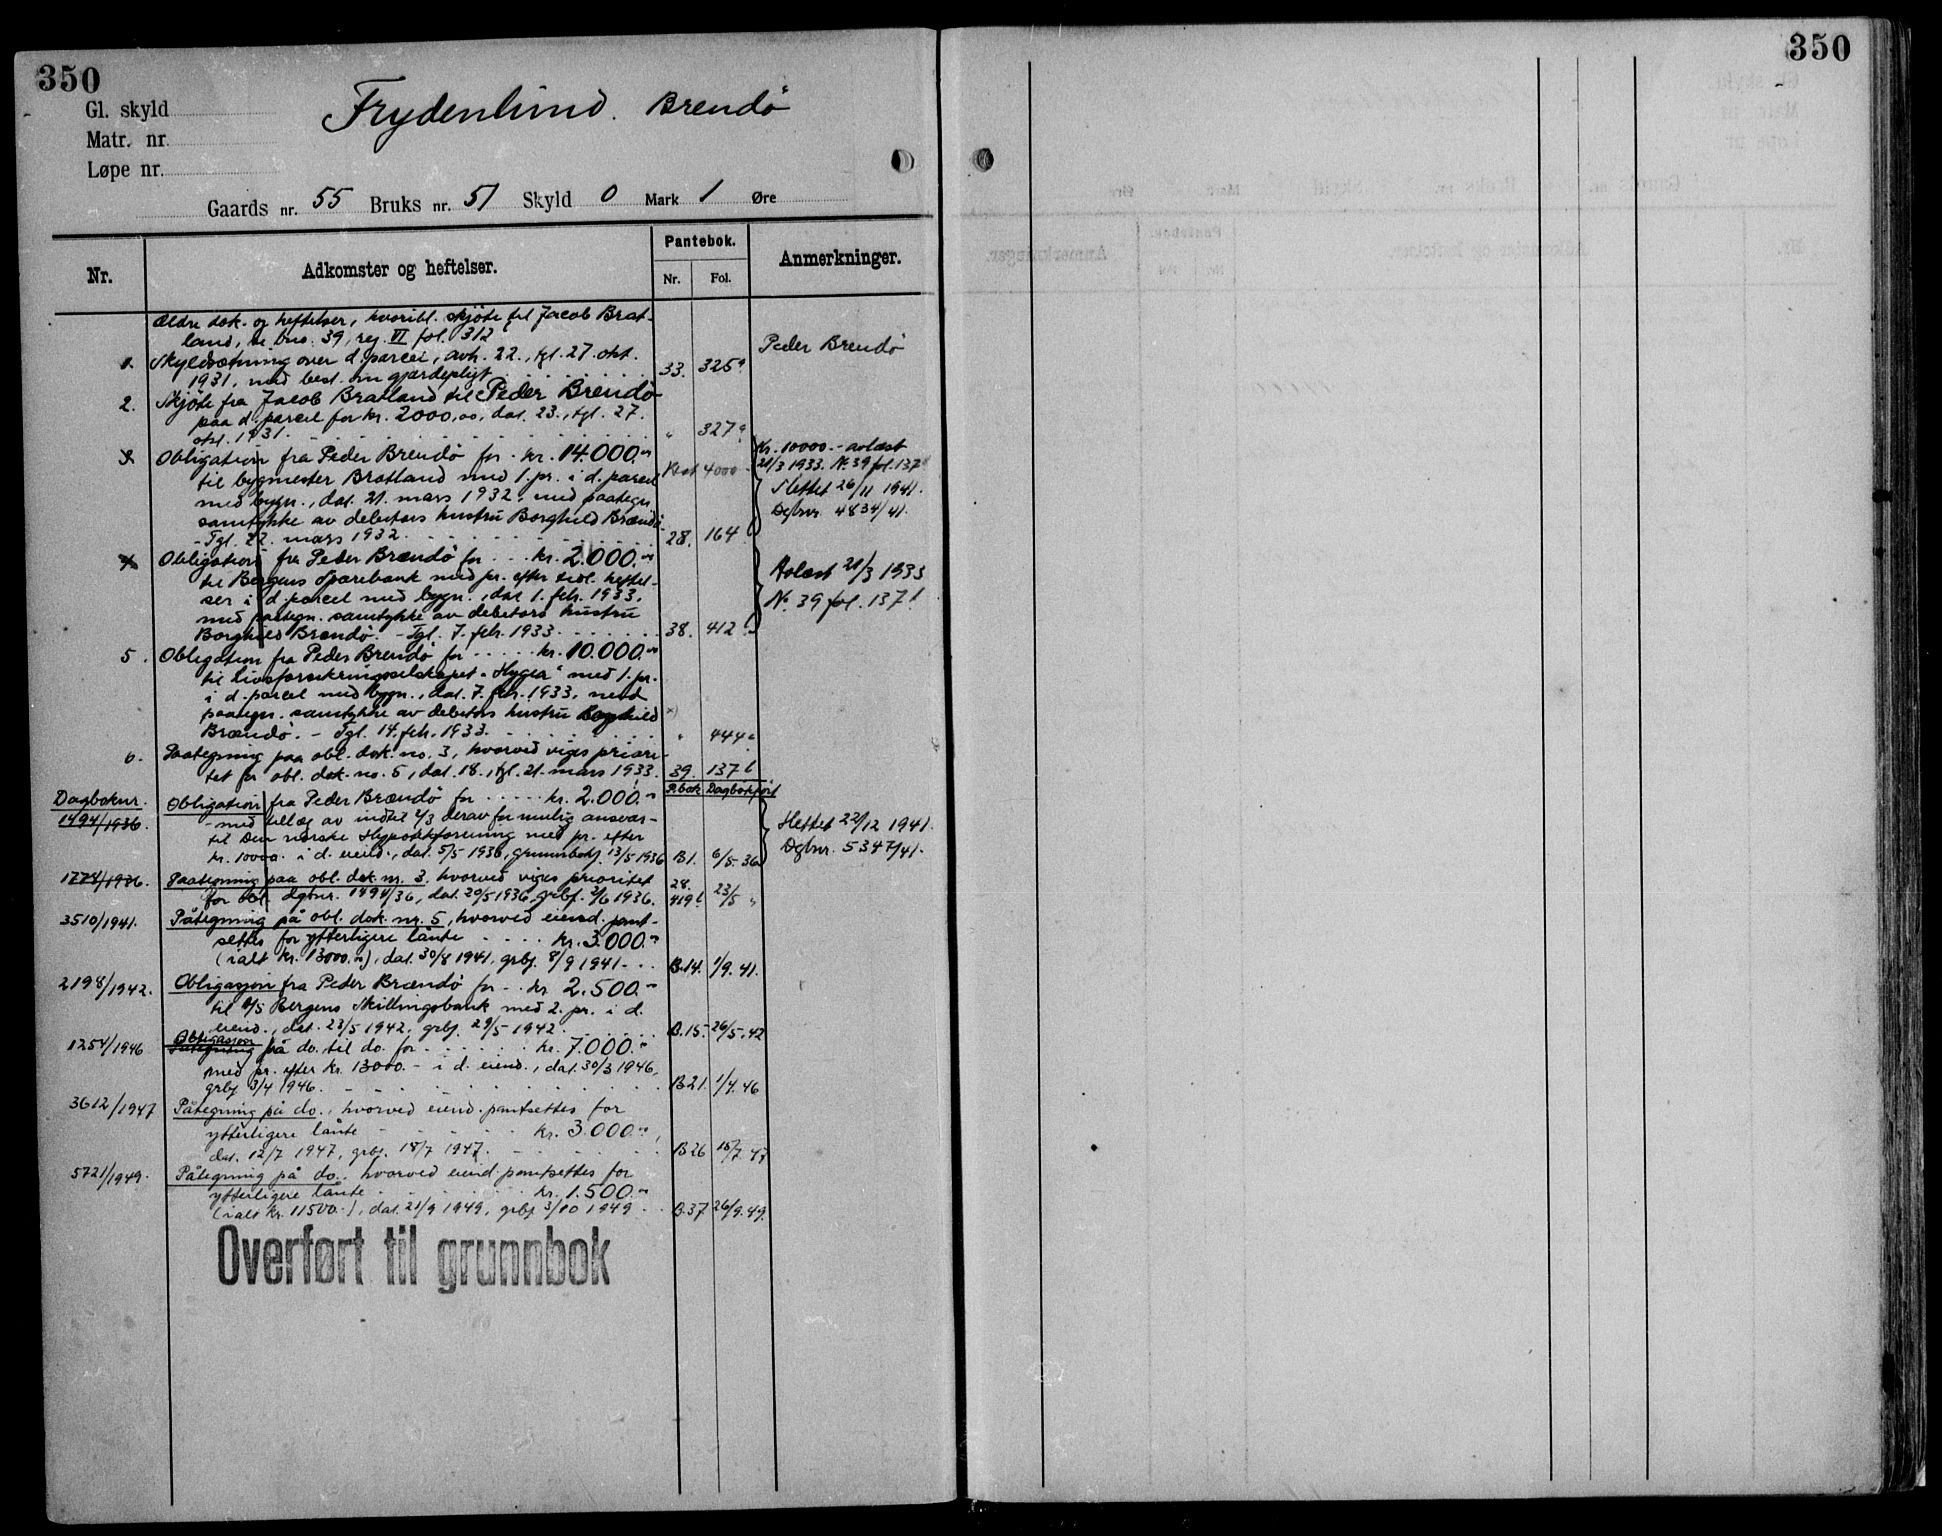 350
350
Gl. skyld
Matr. nr.
Løpe nr.
Frydenlund. Brendö
Gaards nr. 55 Bruks nr. 51 Skyld 0 Mark 1 Øre
Nr. Adkomster og heftelser. Pantebok. Anmerkninger.
Nr. Fol.
Ældre dok. og heftelser, hvoribl. skjöte til Jacob Brat-
land, se bno. 39, reg. VI fol. 312
Peder Brendö
1. Skyldsætning over d. parcel, avh. 22., tgl. 27. okt.
1931, med best. om gjærdepligt 33. 325a
2. Skjöte fra Jacob Bratland til Peder Brendö
paa d. parcel for kr. 2000,00, dat. 23., tgl. 27.
okt. 1931. " 327a
3. Obligation fra Peder Brendö for kr. 14.000.00
til bygmester Bratland med 1. pr. i d. parcel
med bygn., dat. 21. mars 1932, med paategn.
samtykke av debitors hustru Borghild Brændö
- Tgl. 22. mars 1932. 28. 164
Rest 4000
Kr. 10000.- avlæst
21/3 1933. N. 39 fol. 137
Slettet 26/11 1941.
Dgbnr. 4834/41.
4. Obligation fra Peder Brændö for kr. 2.000.00
til Bergens Sparebank med pr. efter tidl. heftel-
ser i d. parcel med bygn., dat. 1. feb. 1933,
med paategn. samtykke av debitors hustru
Borghild Brændö. - Tgl. 7. feb. 1933. 38. 412
Avlæst 21/3 1933
N. 39 fol. 137
5. Obligation fra Peder Brendö for kr. 10.000.00
til livsforsikringsselskapet "Hygea" med 1. pr.
i d. parcel med bygn., dat. 7. feb. 1933, med
paategn. samtykke av debitors hustru Borghild
Brændö. - Tgl. 14. feb. 1933. " 444
6. Paategning paa obl. dok. no. 3, hvorved viges priori-
tet for obl. dok. no. 5, dat. 18., tgl. 21. mars 1933. 39. 137
P.bok Dagbokført
Dagboknr.
1494/1936. Obligation fra Peder Brændö for kr. 2.000.00
- med tillæg av indtil 2/3 derav for mulig ansvar -
til Den norske Hypotekforening med pr. efter
kr. 10000. i d. eiend., dat. 5/5 1936, grunnbokf. 13/5 1936 B1. 6/5-36
Slettet 22/12 1941.
Dgbnr. 5347/41.
1774/1936. Paategning paa obl. dok. nr. 3, hvorved viges prioritet
for obl. dgbnr. 1494/36, dat. 20/5 1936, grbf. 2/6 1936. 28. 419 23/5 "
3510/1941. Påtegning på obl. dok. nr. 5, hvorved eiend. pant-
settes for ytterligere lånte kr. 3.000.00
(ialt kr. 13000.00), dat. 30/8 1941, grbf. 8/9 1941. B.14. 1/9.41.
2198/1942. Obligasjon fra Peder Brændö for kr 2.500.00
til A/S Bergens Skillingsbank med 2. pr. i d.
eiend., dat. 23/5 1942, grbf. 29/5 1942. B.15. 26/5.42
Obligasjon
1254/1946 Påtegning på do. til do. for kr. 7.000.00
med pr. efter kr. 13000.- i d. eiend., dat. 30/3 1946,
grbf 3/4 1946. B21. 1/4.46
3612/1947 Påtegning på do., hvorved eiend. pantsettes for
ytterligere lånte kr. 3.000.00,
dat. 12/7 1947, grbf. 18/7 1947. B26 15/7.47
5721/1949. Påtegning på do., hvorved eiend. pantsettes for
ytterligere lånte kr. 1.500.00
(ialt kr. 11500.-), dat. 21/9 1949, grbf 3/10 1949. B.37. 26/9.49.
Overført til grunnbok